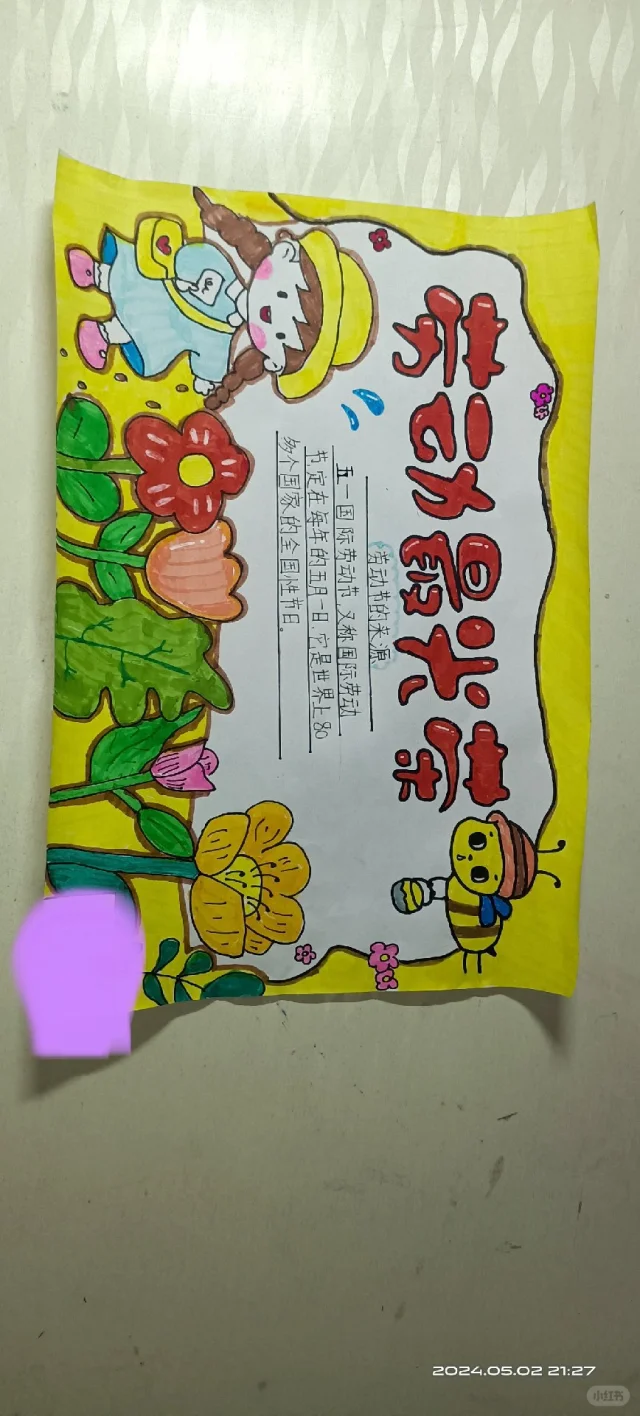 劳动最光荣
劳动节的来源
五一国际劳动节，又称国际劳动
节，定在每年的五月一日。它是世界上80
多个国家的全国性节日。
2024.05.02 21:27
小红书